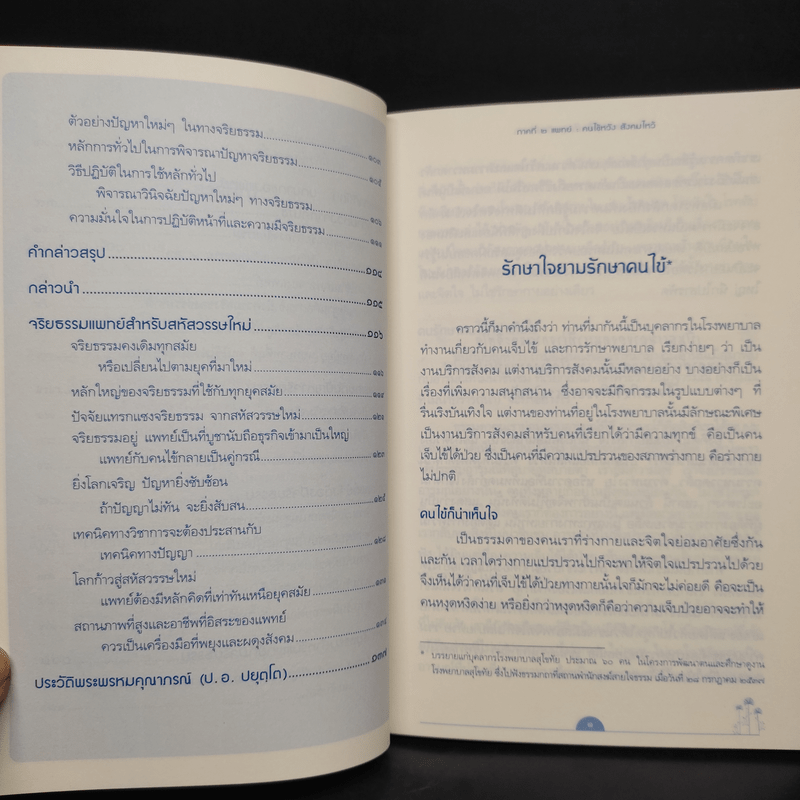 ตัวอย่างปัญหาใหม่ๆ ในทางจริยธรรม
หลักการทั่วไปในการพิจารณาปัญหาจริยธรรม ๑๐๕
วิธีปฏิบัติในการใช้หลักทั่วไป
พิจารณาวินิจฉัยปัญหาใหม่ๆ ทางจริยธรรม
ความมั่นใจในการปฏิบัติหน้าที่และความมีจริยธรรม ๑๑๑
คำกล่าวสรุป ๑๑๔
กล่าวนำ ๑๑๕
จริยธรรมแพทย์สำหรับสหัสวรรษใหม่ ๑๑๖
จริยธรรมคงเดิมทุกสมัย
หรือเปลี่ยนไปตามยุคที่มาใหม่ ๑๑๖
หลักใหญ่ของจริยธรรมที่ใช้กับทุกยุคสมัย
ปัจจัยแทรกแซงจริยธรรม จากสหัสวรรษใหม่ ๑๒๑
จริยธรรมอยู่ แพทย์เป็นที่บูชานับถือธุรกิจเข้ามาเป็นใหญ่
แพทย์กับคนไข้กลายเป็นคู่กรณี ๑๒๓
ยิ่งโลกเจริญ ปัญหายิ่งซับซ้อน
ถ้าปัญญาไม่ทัน จะยิ่งสับสน ๑๒๕
เทคนิคทางวิชาการจะต้องประสานกับ
เทคนิคทางปัญญา ๑๒๘
โลกก้าวสู่สหัสวรรษใหม่
แพทย์ต้องมีหลักคิดที่เท่าทันเหนือยุคสมัย ๑๓๑
สถานภาพที่สูงและอาชีพที่อิสระของแพทย์
ควรเป็นเครื่องมือที่พยุงและผดุงสังคม ๑๓๔
ประวัติพระพรหมคุณาภรณ์ (ป. อ. ปยุตฺโต) ๑๓๗
ภาคที่ ๒ แพทย์ คนไข้หวัง สังคมไหว้
รักษาใจยามรักษาคนไข้*
คราวนี้ก็มาคำนึงถึงว่า ท่านที่มากันนี้เป็นบุคลากรในโรงพยาบาล
ทำงานเกี่ยวกับคนเจ็บไข้ และการรักษาพยาบาล เรียกง่ายๆ ว่า เป็น
งานบริการสังคม แต่งานบริการสังคมนั้นมีหลายอย่าง บางอย่างก็เป็น
เรื่องที่เพิ่มความสนุกสนาน ซึ่งอาจจะมีกิจกรรมในรูปแบบต่างๆ ที่
รื่นเริงบันเทิงใจ แต่งานของท่านที่อยู่ในโรงพยาบาลนั้นมีลักษณะพิเศษ
เป็นงานบริการสังคมสำหรับคนที่เรียกได้ว่ามีความทุกข์ คือเป็นคน
เจ็บไข้ได้ป่วย ซึ่งเป็นคนที่มีความแปรปรวนของสภาพร่างกาย คือร่างกาย
ไม่ปกติ
คนไข้ก็น่าเห็นใจ
เป็นธรรมดาของคนเราที่ร่างกายและจิตใจย่อมอาศัยซึ่งกัน
และกัน เวลาใดร่างกายแปรปรวนไปก็จะพาให้จิตใจแปรปรวนไปด้วย
จึงเห็นได้ว่าคนที่เจ็บไข้ได้ป่วยทางกายนั้นใจก็มักจะไม่ค่อยดี คือจะเป็น
คนหงุดหงิดง่าย หรือยิ่งกว่าหงุดหงิดก็คือว่าความเจ็บป่วยอาจจะทำให้
* บรรยายแก่บุคลากรโรงพยาบาลสุโขทัย ประมาณ ๖๐ คน ในโครงการพัฒนาคนและศึกษาดูงาน
โรงพยาบาลสุโขทัย ซึ่งไปฟังธรรมกถาที่สถานพำนักสงฆ์สายใจธรรม เมื่อวันที่ ๒๘ กรกฎาคม ๒๕๓๗